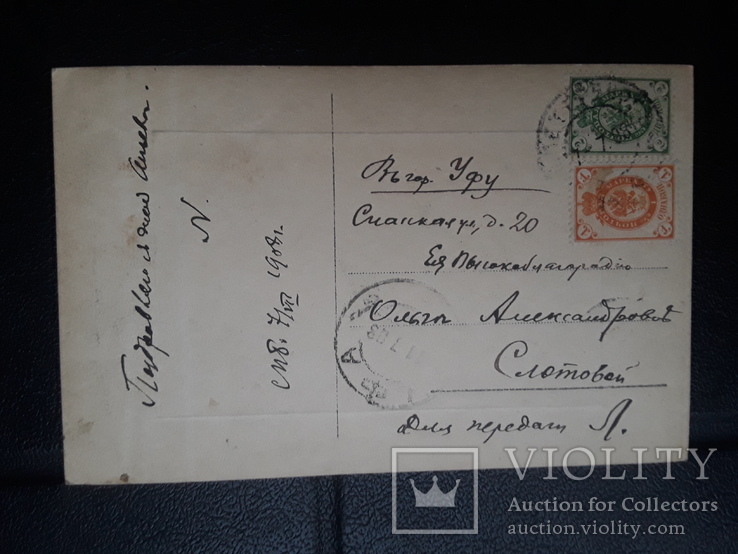 Поздравляю я днем Ангела.
N.
СПБ. 7/VII 1908 г.
Въ гор. Уфу
Спасская ул, д. 20
Ея Высокоблагородію
Ольгѣ Александровнѣ
Слотовой
Для передачи Л.
УФА
11 7 08
VIOLITY
Auction for Collectors
auction.violity.com